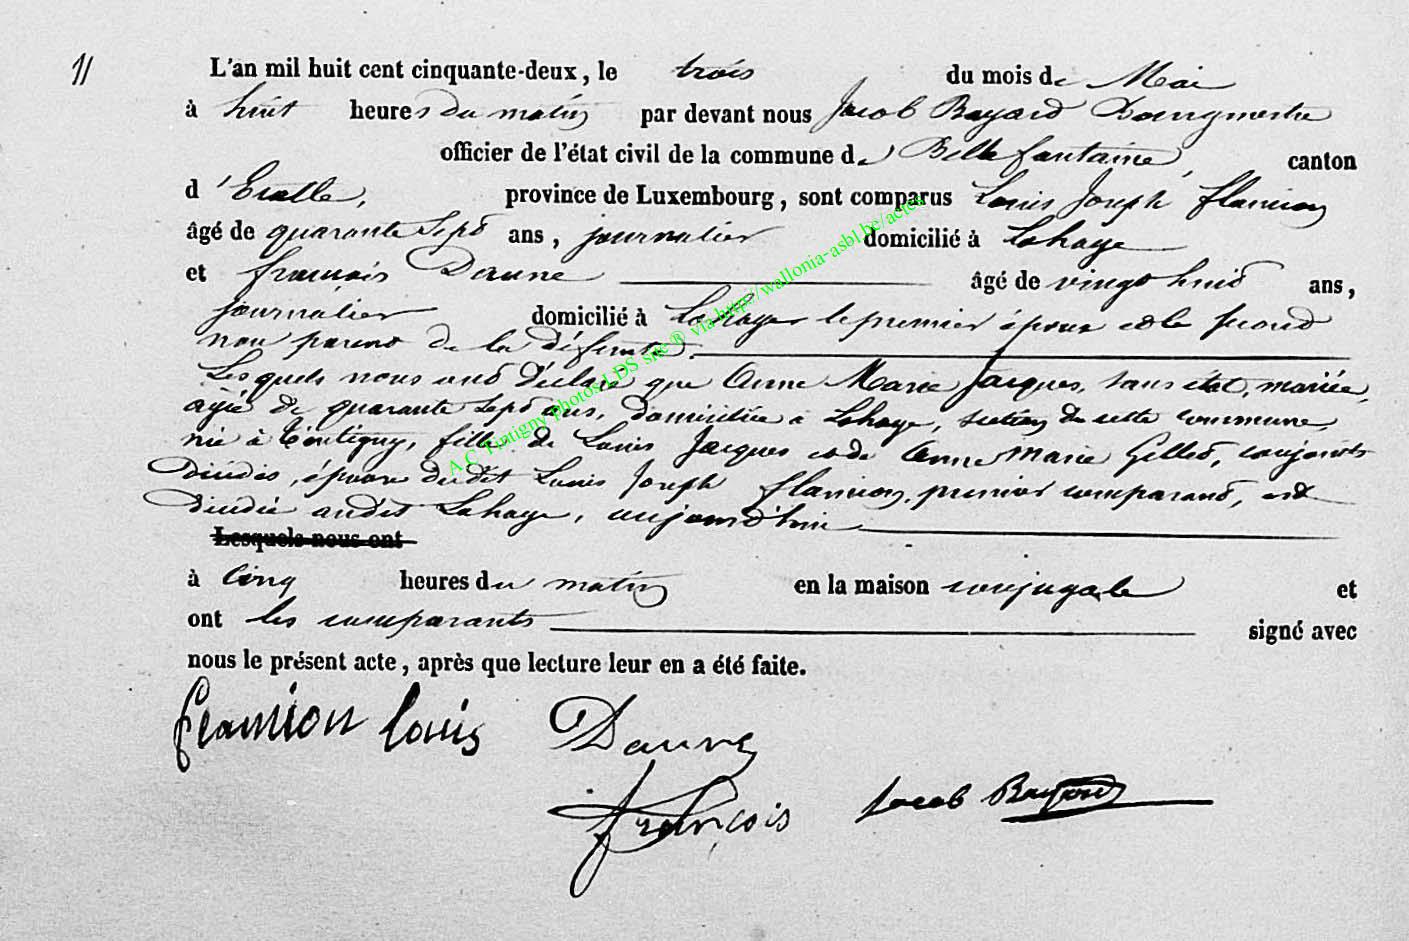 11
L'an mil huit cent cinquante-deux, le trois du mois de Mai
à huit heures du matin par devant nous Jacob Bayard Bourgmestre
officier de l'état civil de la commune de Bellefontaine, canton
d'Etalle, province de Luxembourg, sont comparus Louis Joseph flamion
âgé de quarante sept ans, journalier domicilié à Lahage
et françois Daune âgé de vingt huit ans,
journalier domicilié à Lahage le premier époux et le second
non parent de la défunte.
Lesquels nous ont déclaré que Anne Marie Jacques, sans état, mariée,
agée de quarante sept ans, domiciliée à Lahage, section de cette commune,
née à Tintigny, fille de Louis Jacques et de Anne Marie Gillet, conjoints
décédés, épouse du dit Louis Joseph flamion, premier comparant, est
décédée audit Lahage, aujourd'hui
Lesquels nous ont
à cinq heures du matin en la maison conjugale et
ont les comparants signé avec
nous le présent acte, après que lecture leur en a été faite.
flamion louis Daune
françois Jacob Bayard
A.C. Tintigny photos LDS site ® via http://wallonia-asbl.be/actes